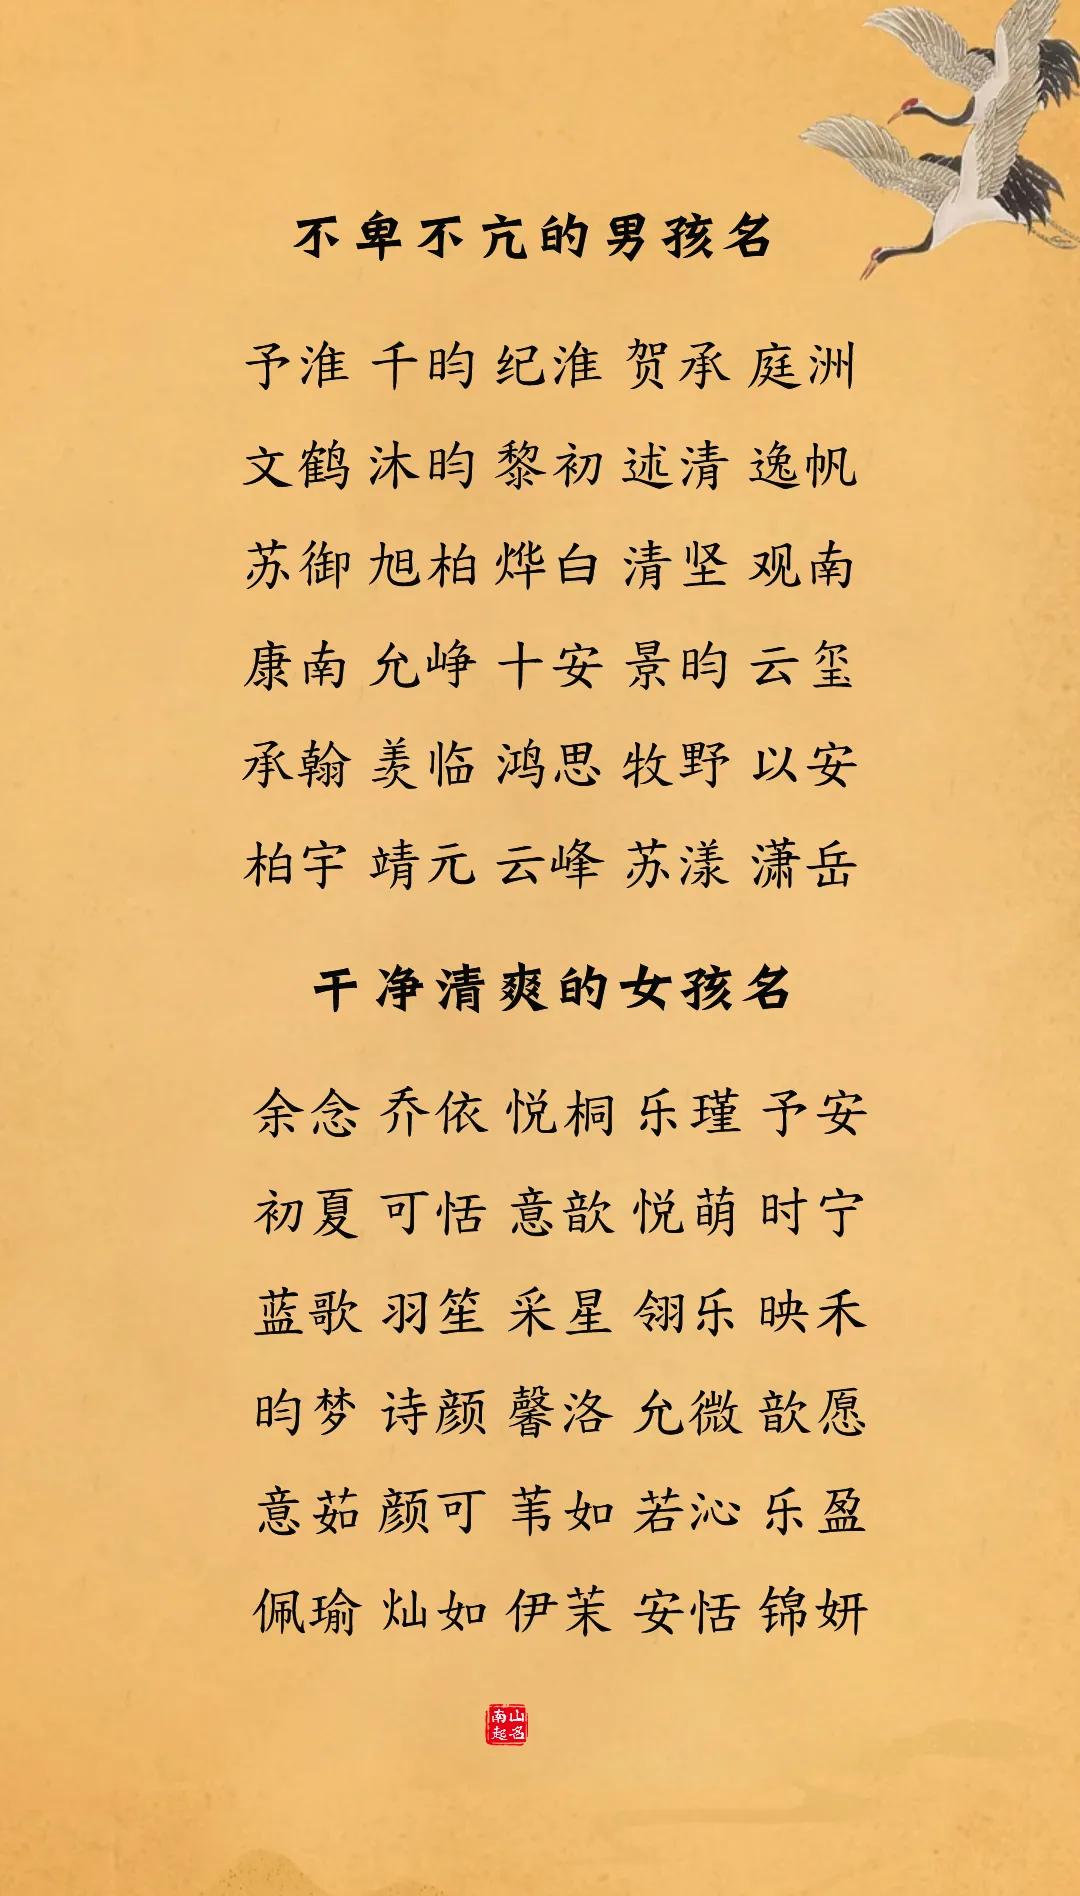 不卑不亢的男孩名
予淮 千昀 纪淮 贺承 庭洲
文鹤 沐昀 黎初 述清 逸帆
苏御 旭柏 烨白 清坚 观南
康南 允峥 十安 景昀 云玺
承翰 羡临 鸿思 牧野 以安
柏宇 靖元 云峰 苏漾 潇岳
干净清爽的女孩名
余念 乔依 悦桐 乐瑾 予安
初夏 可恬 意歆 悦萌 时宁
蓝歌 羽笙 采星 翎乐 映禾
昀梦 诗颜 馨洛 允微 歆愿
意茹 颜可 苇如 若沁 乐盈
佩瑜 灿如 伊茉 安恬 锦妍
南山
起名